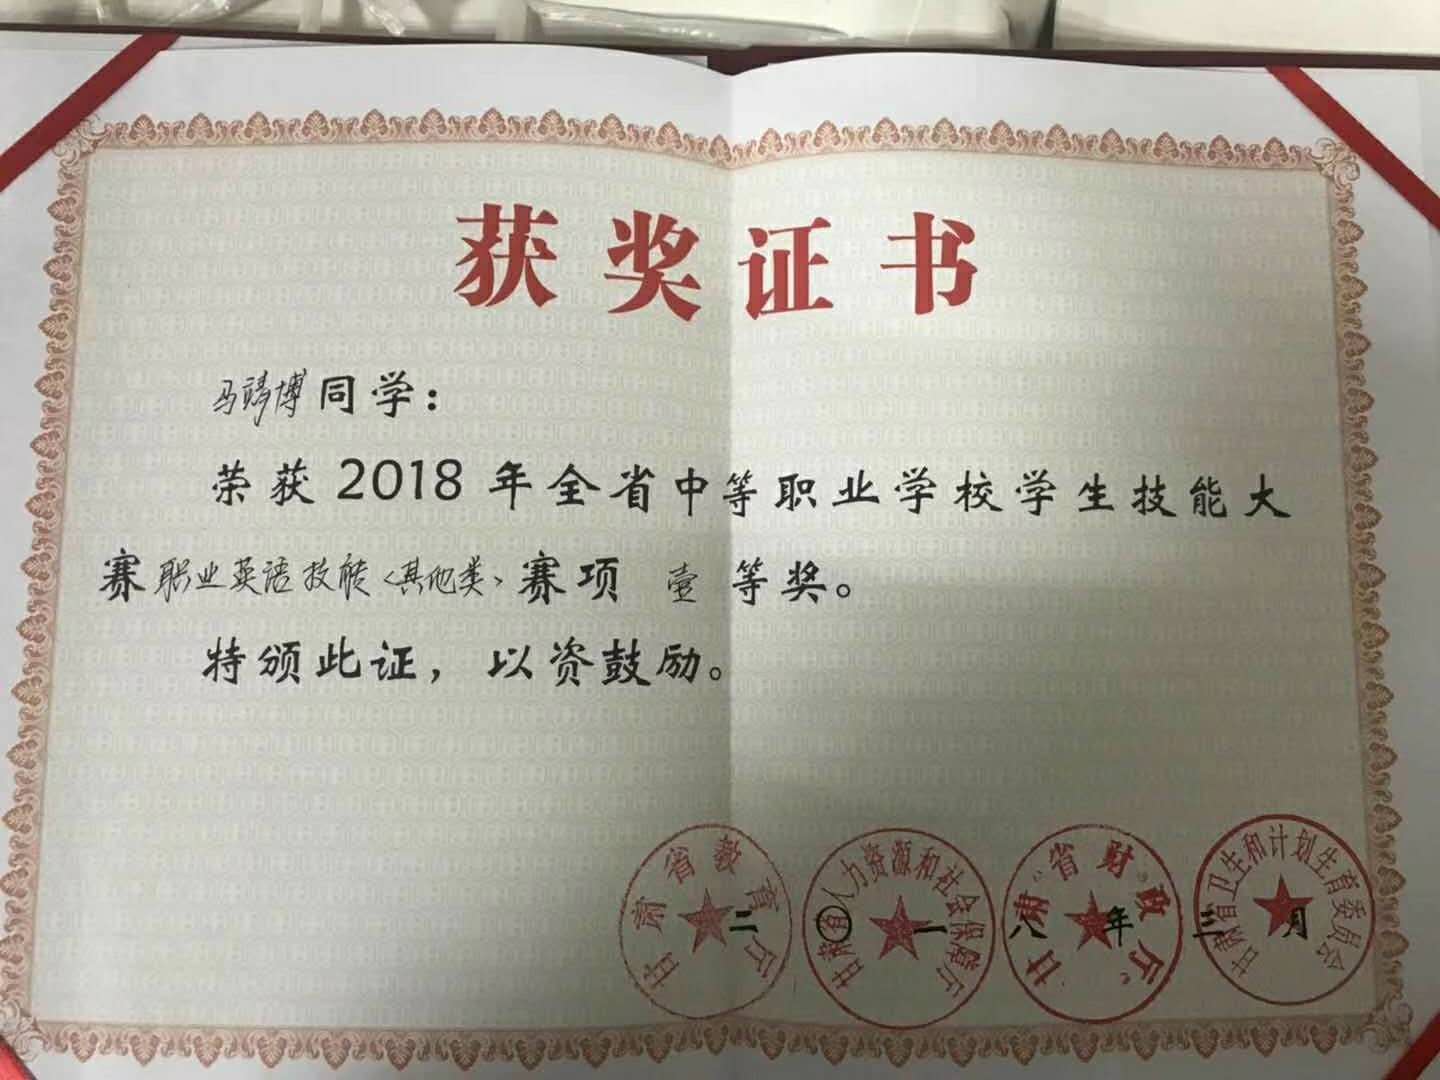 获奖证书
马靖博同学：
荣获2018年全省中等职业学校学生技能大
赛职业英语技能（其他类）赛项 壹 等奖。
特颁此证，以资鼓励。
甘肃省教育厅
甘肃省人力资源和社会保障厅
甘肃省财政厅
甘肃省卫生和计划生育委员会
二〇一八年三月